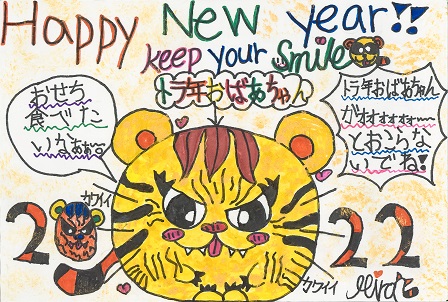 Happy New year!!
keep your Smile
トラ年おばあちゃん
おせち
食べた
いかぁぁぁ
トラ年おばあちゃん
がオオォォォォー
とおらな
いでね!
カワイイ
2022
カワイイ